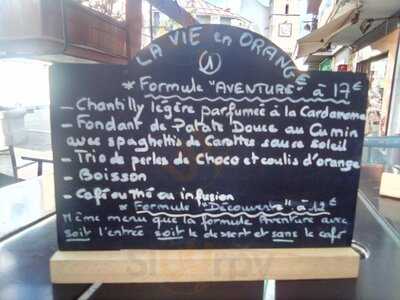 LA VIE en ORANGE
* Formule "AVENTURE" à 17€
- Chantilly légère parfumée à la Cardamome
- Fondant de Patate Douce au Cumin
avec spaghettis de Carottes sauce soleil
- Trio de perles de Choco et coulis d'orange
- Boisson
- Café ou thé ou infusion
* Formule "Découverte" à 12€
Même menu que la formule Aventure avec
soit l'entrée soit le dessert et sans le café